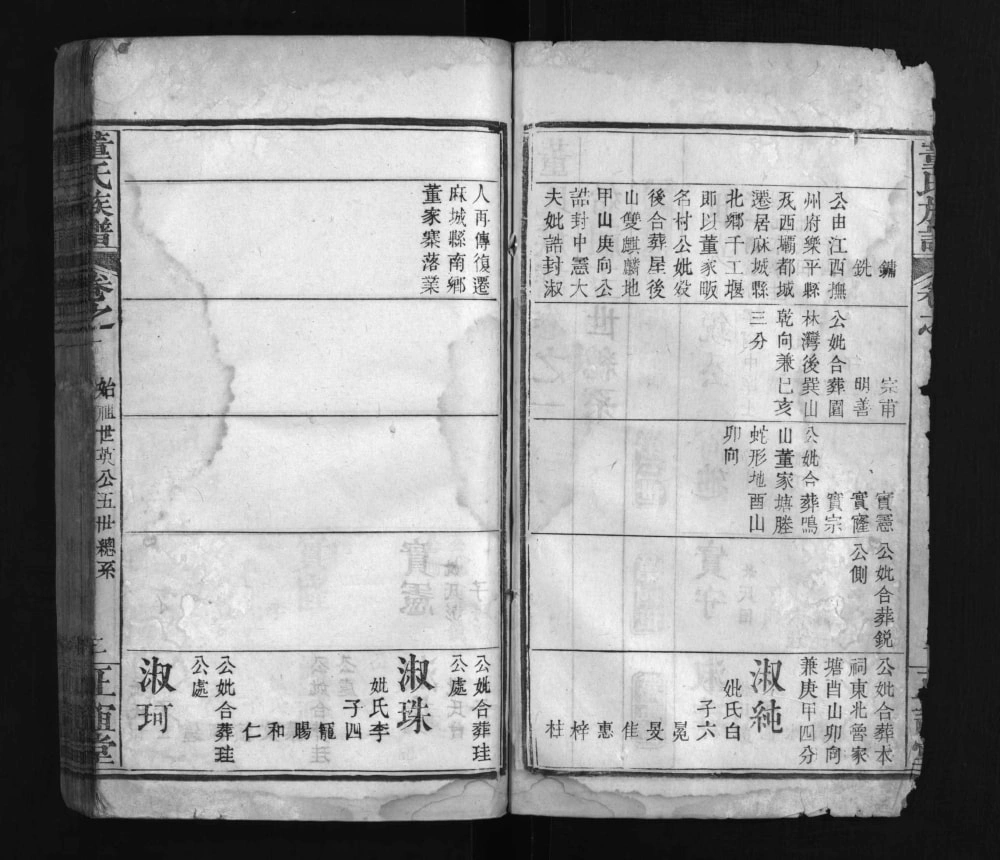 鏞
銑
公由江西撫
州府樂平縣
瓦西壩都城
遷居麻城縣
北鄉千工堰
即以董家畈
名村公妣歿
後合葬星後
山雙麒麟地
甲山庚向公
誥封中憲大
夫妣誥封淑
宗甫
明善
公妣合葬園
林灣後巽山
乾向兼巳亥
三分
實憲
實窿
實宗
公妣合葬鳴
山董家塘塍
蛇形地酉山
卯向
公妣合葬銳
公側
公妣合葬本
祠東北曾家
塘酉山卯向
兼庚甲四分
淑純
妣氏白
子六
冕
旻
佳
惠
梓
柱
人再傳復遷
麻城縣南鄉
董家寨落業
公妣合葬珪
公處
淑珠
妣氏李
子四
寵
賜
和
仁
公妣合葬珪
公處
淑珂
董氏族譜
卷之一
始祖世英公五世總系
三
正誼堂